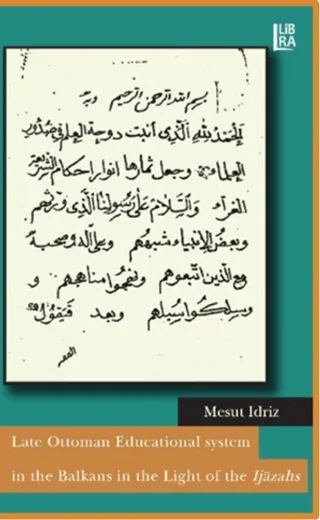 LiB
RA
بسم الله الرحمن الرحيم وبه
الحمد لله الذى أنبت دوحة العلم فى صدور
العلماء وجعل ثمارها انوار احكام الشريعة
الغراء والسلام على رسولنا الذى ورثهم
وبعض الانبياء شبههم وعلى آله وصحبه
مع الذين اتبعوهم ونهجوا مناهجهم و
وسلكوا سبلهم وبعد فيقول
Mesut Idriz
Late Ottoman Educational system
in the Balkans in the Light of the Ijāzahs